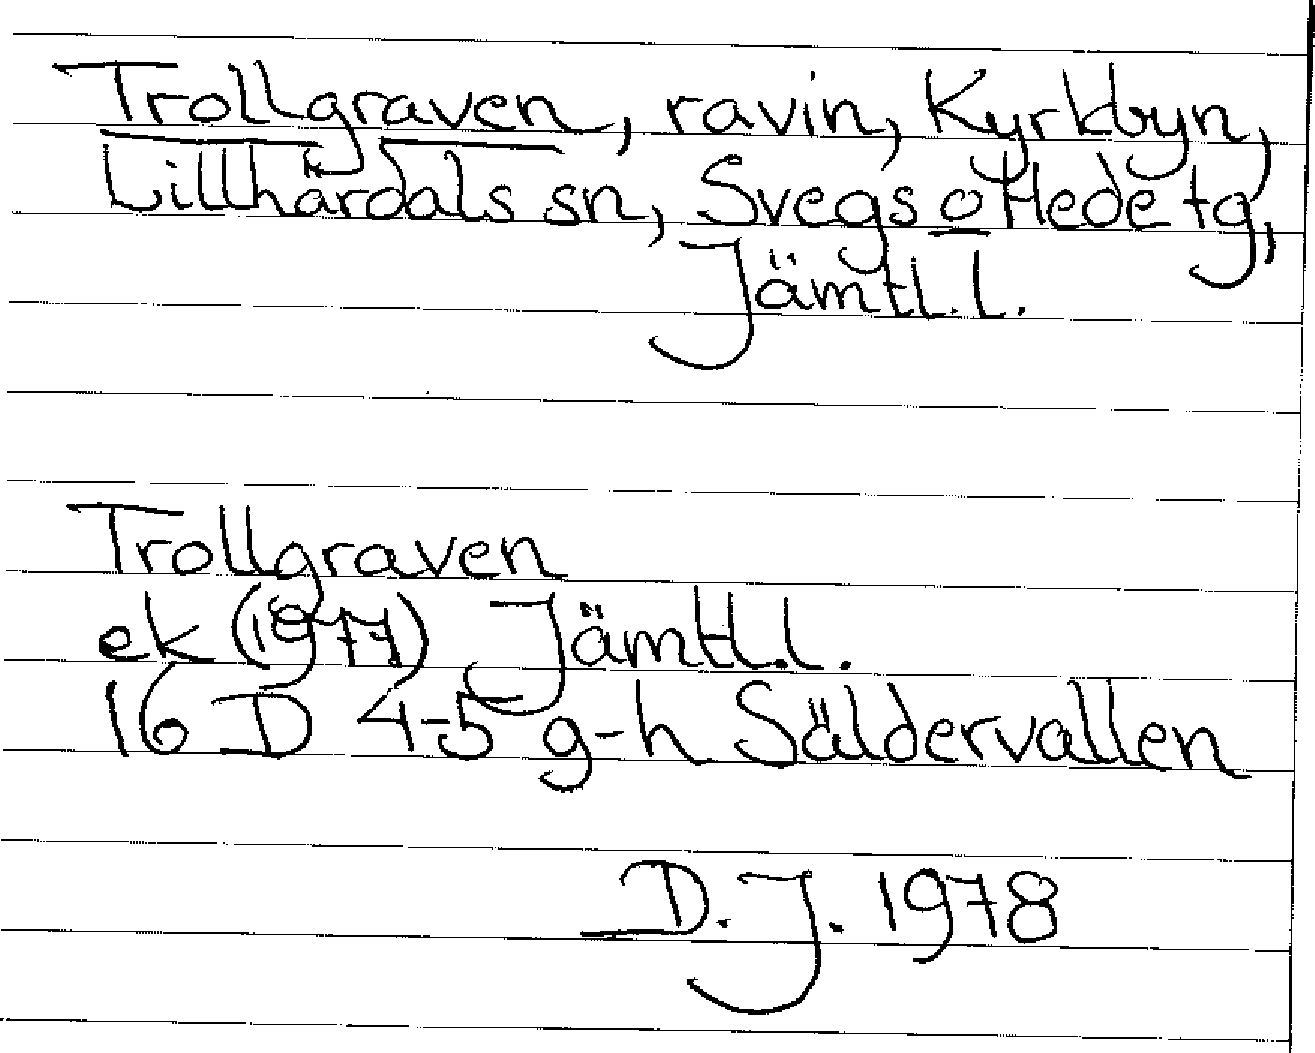 Trollgraven, ravin, Kyrkbyn,
Lillhärdals sn, Svegs o Hede tg,
Jämtl.l.
Trollgraven
ek (1977) Jämtl.l.
16 D 4-5 g-h Säldervallen
D.J. 1978